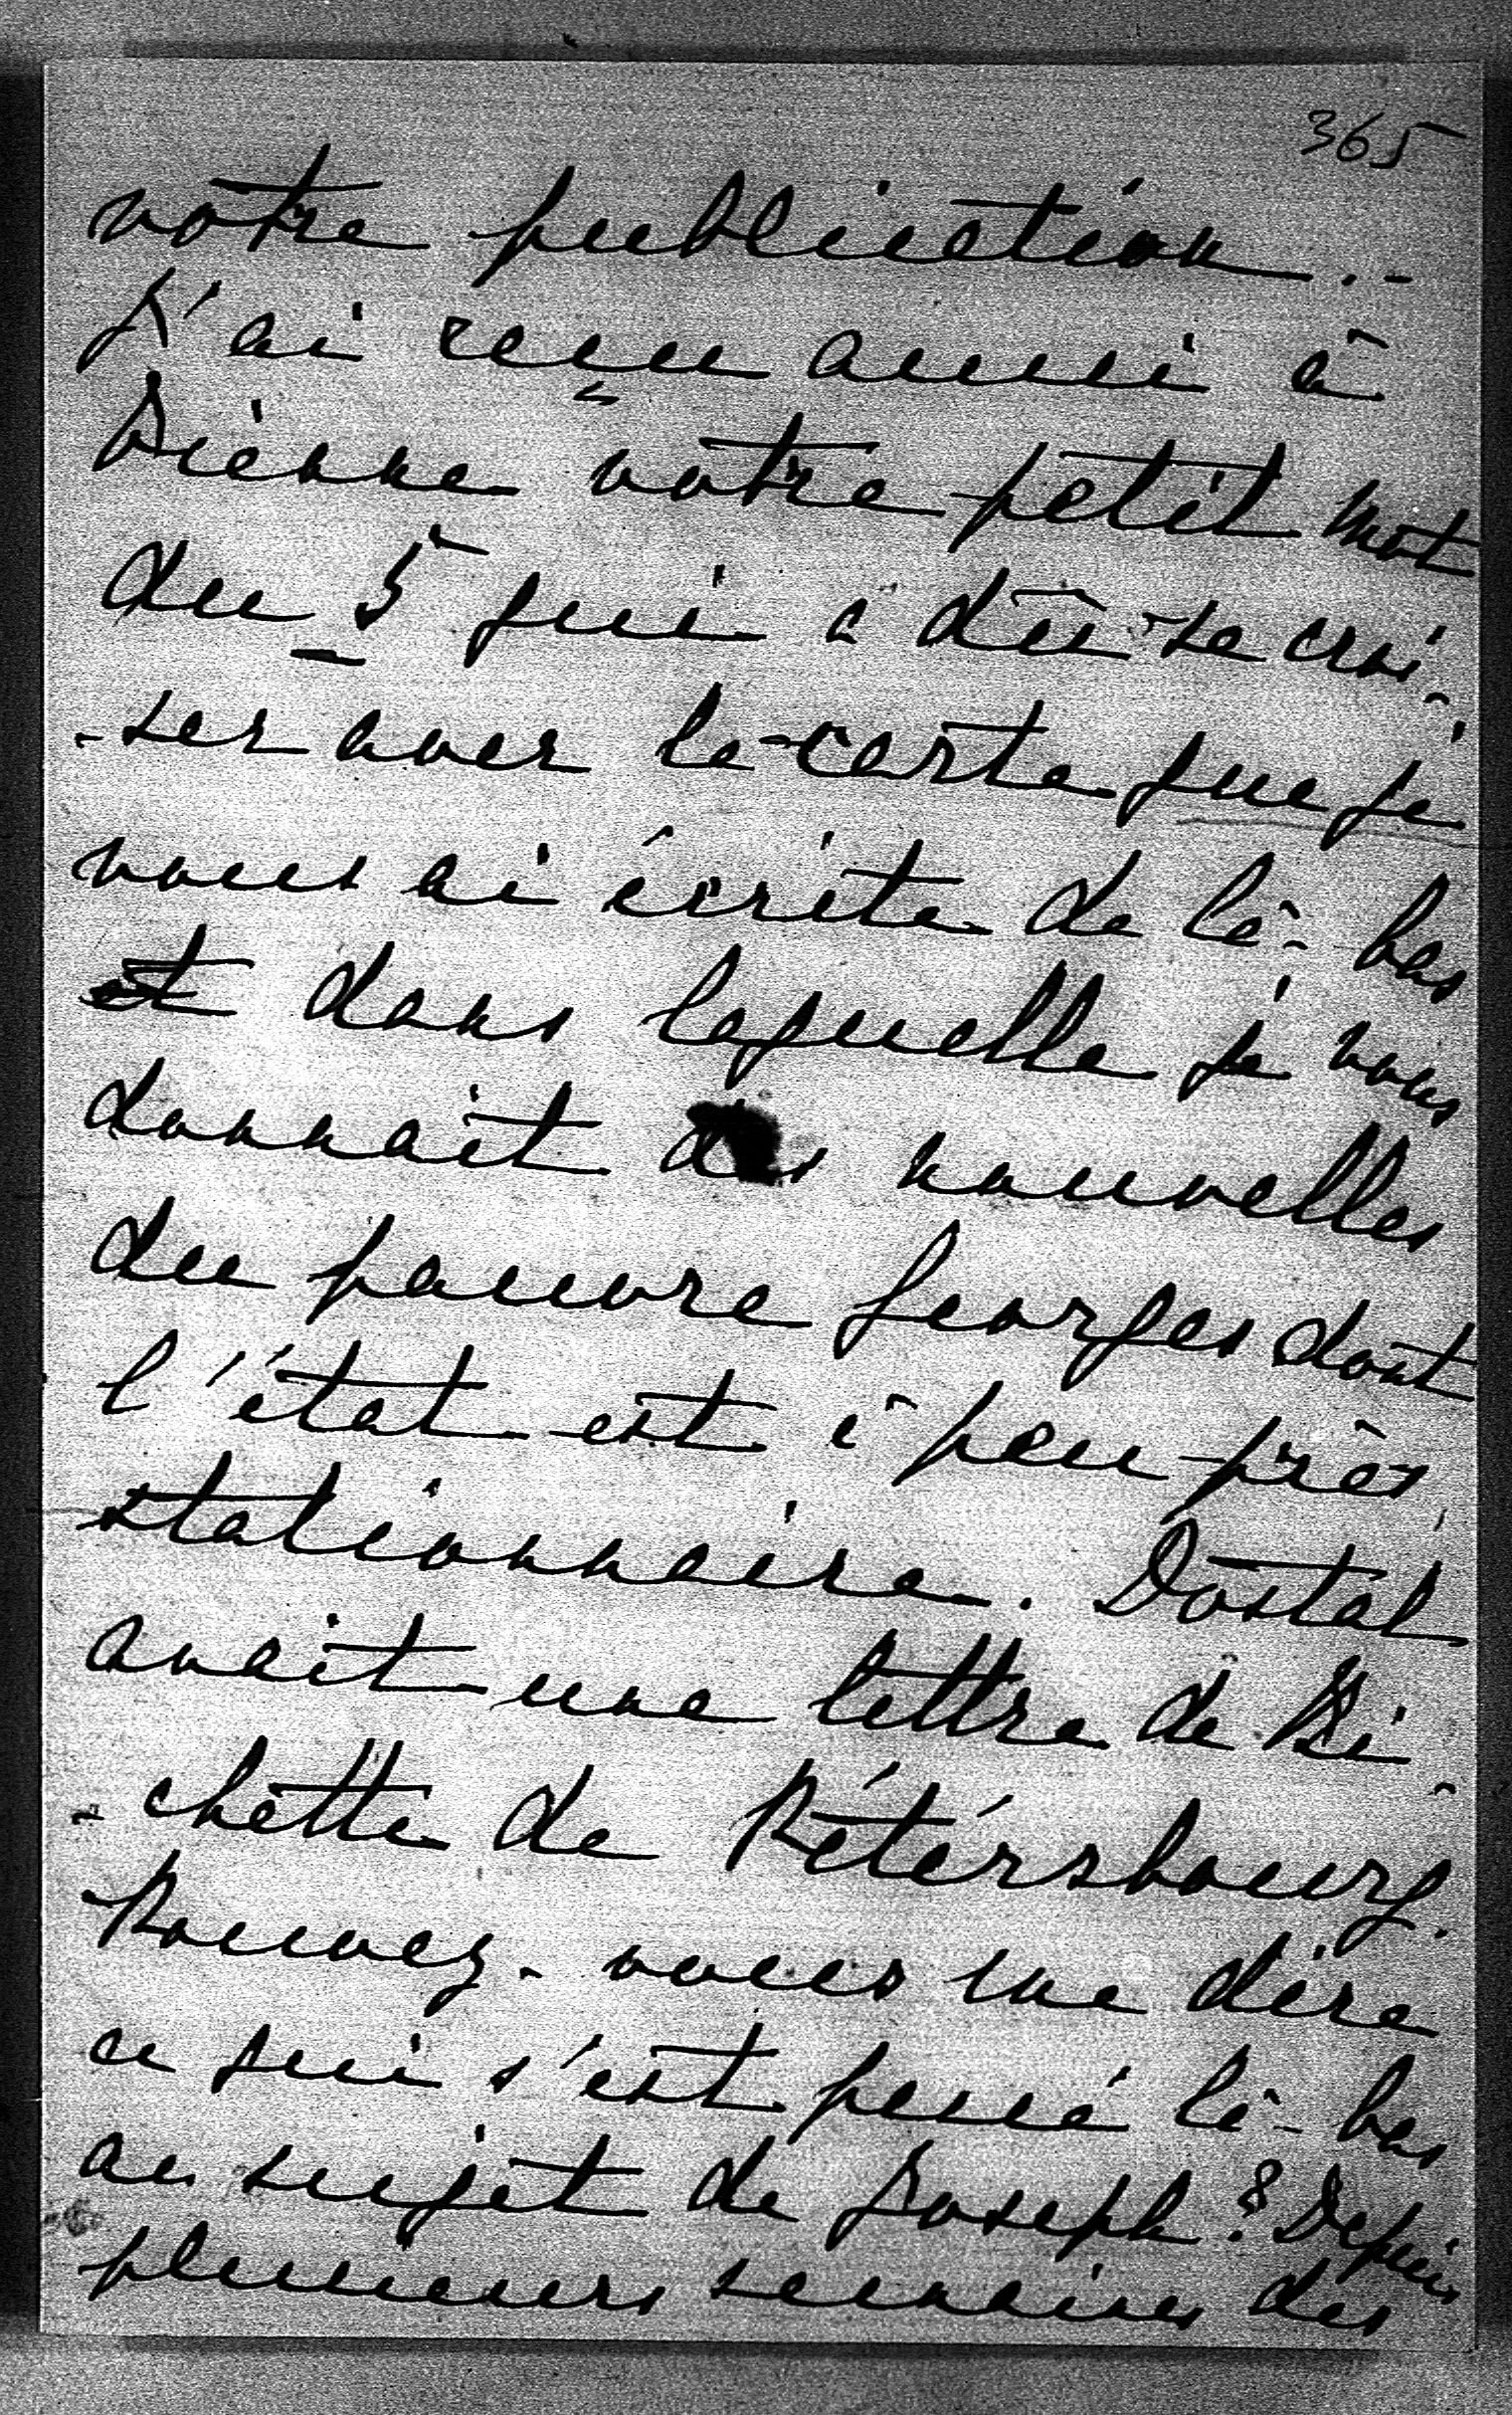 365
votre publication. -
J'ai reçu aussi à
Vienne votre petit mot
du 5 qui a dû se croi-
-ser avec la carte que je
vous ai écrite de là-bas
et dans laquelle je vous
donnait des nouvelles
du pauvre Georges dont
l'état est à peu près
stationnaire. Dostal
avait une lettre de Bi-
-chette de Pétersbourg.
Pouvez-vous me dire
ce qui s'est passé là-bas
au sujet de Joseph? Depuis
plusieurs semaines des